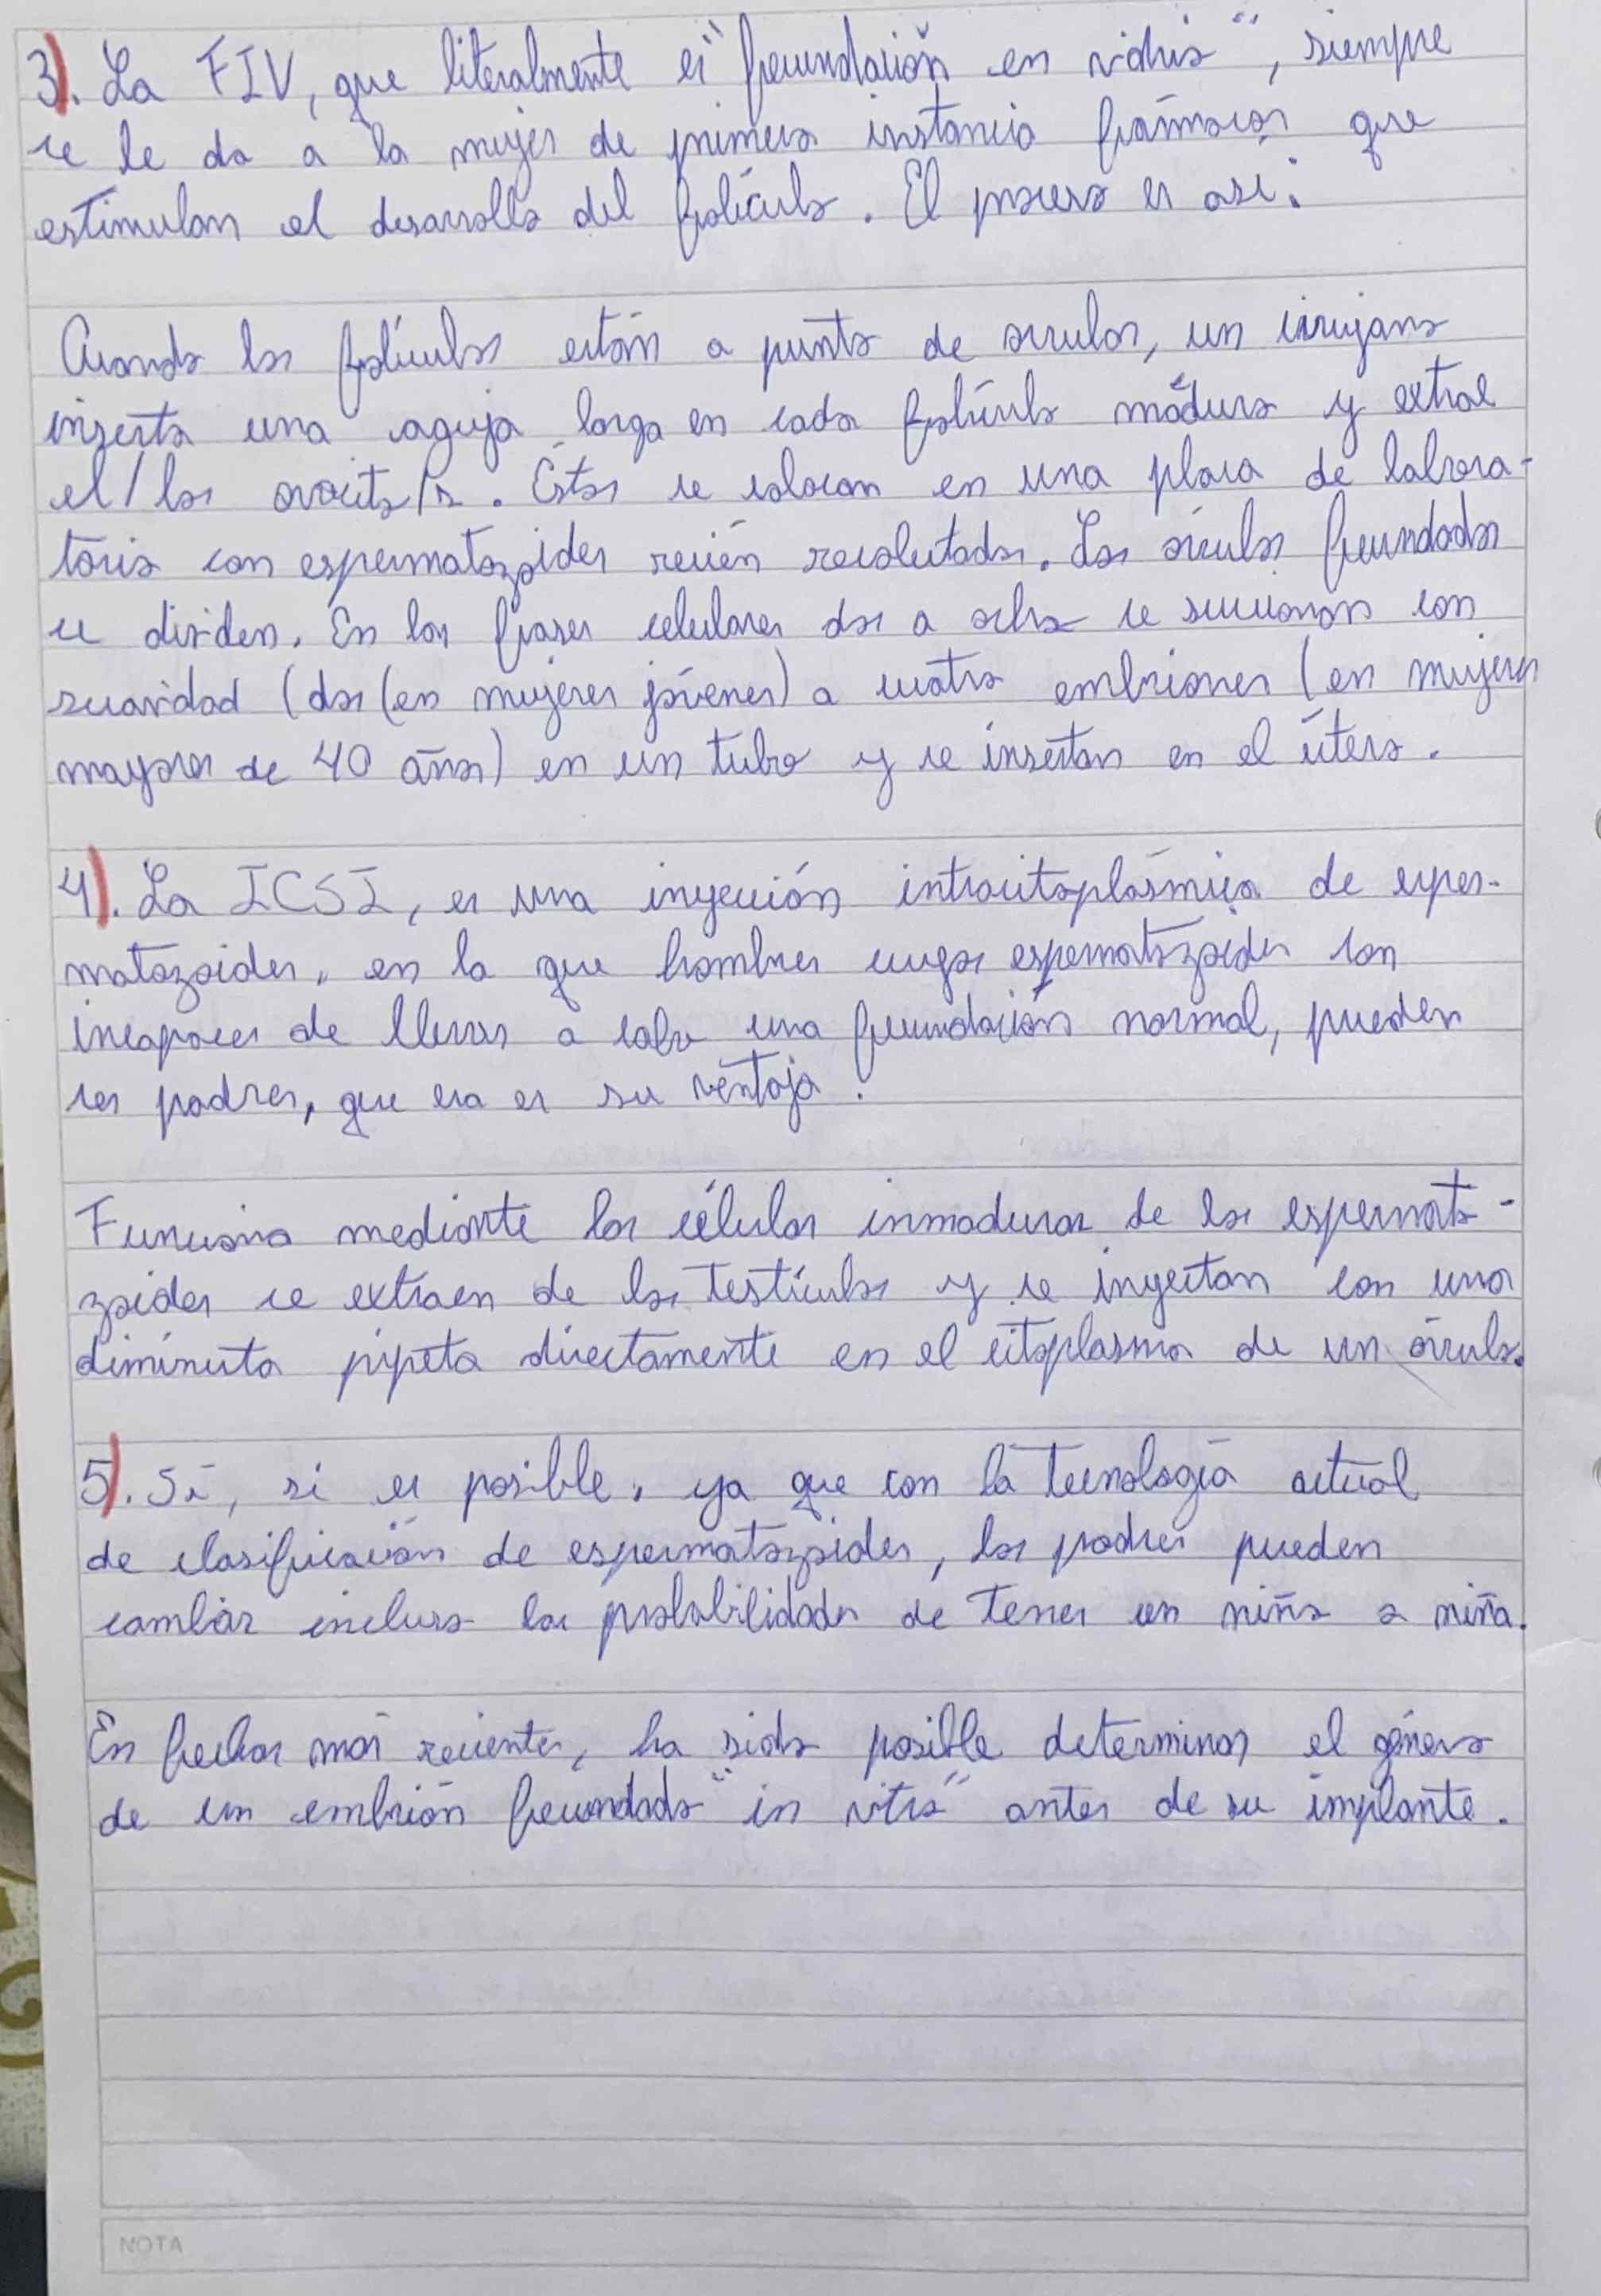 3). La FIV, que literalmente es "fecundación en vidrio", siempre
se le da a la mujer de primera instancia fármacos que
estimulan el desarrollo del folículo. El proceso es así:
Cuando los folículos están a punto de ovular, un cirujano
inserta una aguja larga en cada folículo maduro y extrae
el/los ovocito/s. Éstos se colocan en una placa de labora-
torio con espermatozoides recién recolectados. Los óvulos fecundados
se dividen. En las fases celulares dos a ocho se succionan con
suavidad (dos (en mujeres jóvenes) a cuatro embriones (en mujeres
mayores de 40 años) en un tubo y se insertan en el útero.
4). La ICSI, es una inyección intracitoplásmica de esper-
matozoides, en la que hombres cuyos espermatozoides son
incapaces de llevar a cabo una fecundación normal, pueden
ser padres, que esa es su ventaja.
Funciona mediante las células inmaduras de los espermato-
zoides se extraen de los testículos y se inyectan con una
diminuta pipeta directamente en el citoplasma de un óvulo.
5). Sí, si es posible, ya que con la tecnología actual
de clasificación de espermatozoides, los padres pueden
cambiar incluso las probabilidades de tener un niño o niña.
En fechas más recientes, ha sido posible determinar el género
de un embrión fecundado "in vitro" antes de su implante.
NOTA